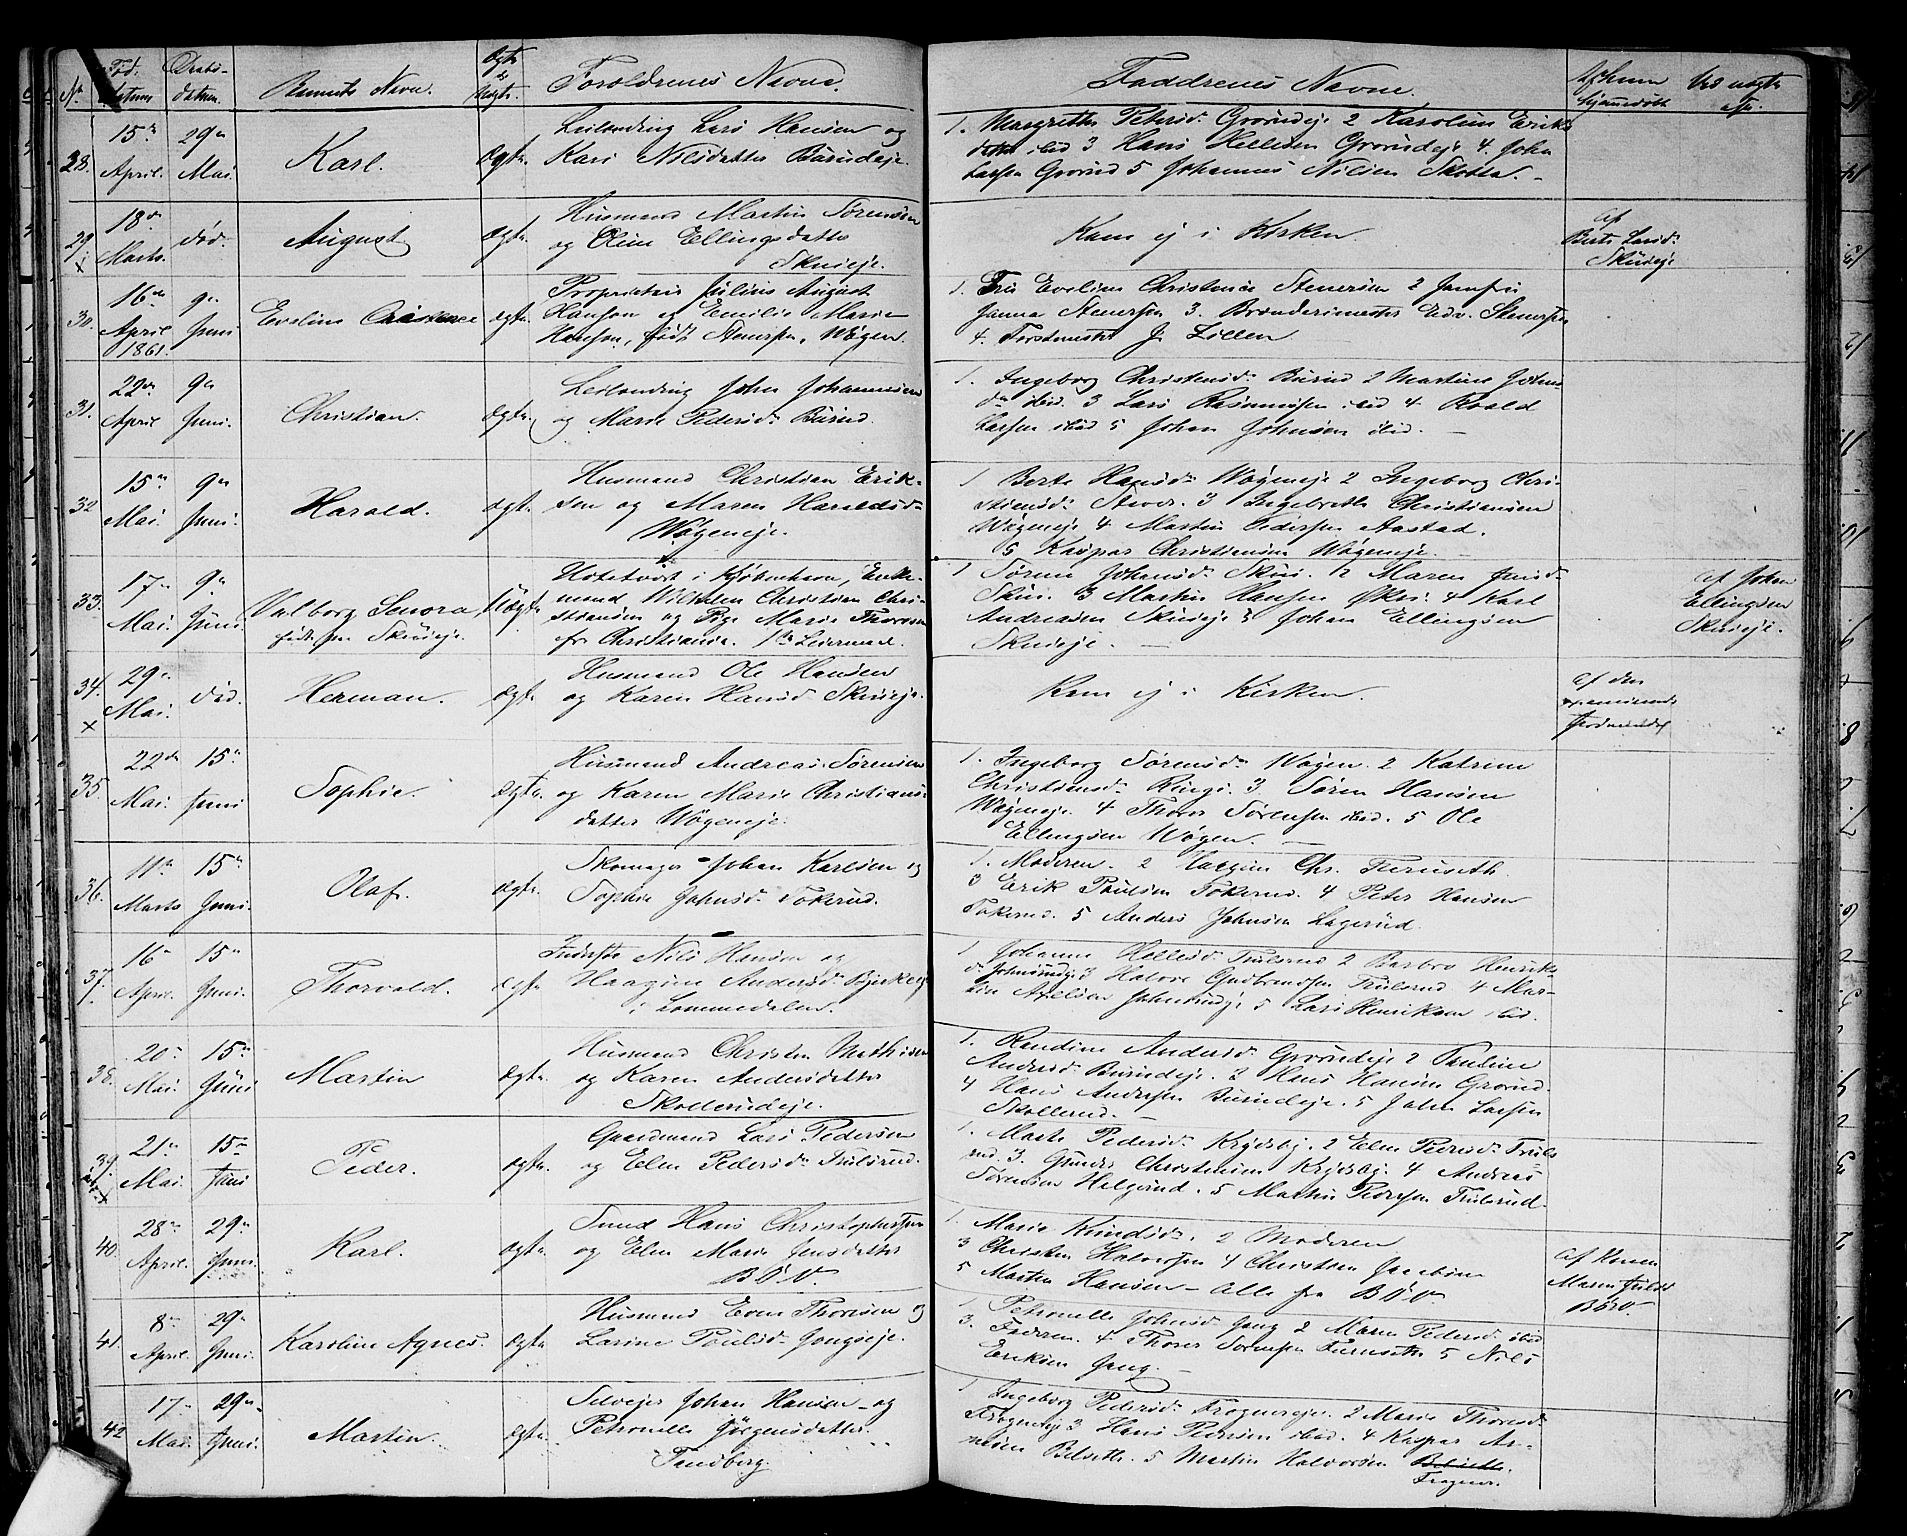 No. Fød. Datum Daabs- datum. Barnets Navn. Ægte el. Uægte. Forældrenes Navne. Faddrenes Navne. Af hvem hjemmedøbt
28. 15de April. 29de Mai. Karl. ægte. Leilænding Lars Hansen og
Kari Nilsdatter Burudeje.
1. Margrethe Pedersd. Grorudeje 2 Karoline Eriks-
datter ibid 3 Hans Hellesen Grorudeje 4. John
Larsen Grorud 5 Johannes Nilsen
29 x 18de Marts. død. August ægte. Husmand Martin Sørensen
og Oline Ellingsdatter
Skuieje.
Kom ej i Kirken.
af
Berte Larsd.
Skuieje
30. 16de April 1861. 9de Juni Eveline Christence ægte. Proprietair Julius August
Hansen og Emilie Marie
Hansen, født Stenersen, Wøyen.
1. Fru Eveline Christence Stenersen 2 Jomfru
Hanna Stenersen 3. Brænderimester Edv. Stenersen
4. Forstmester J.
31. 22de April 9de Juni. Christian. ægte. Leilænding John Johannesen
og Marie Pedersd. Burud.
1. Ingeborg Christensd. Burud 2 Martine Johns-
dr. ibid. 3 Lars Rasmussen ibid 4 Roald
Larsen ibid 5 Johan Johnsen ibid.
32 15de Mai. 9de Juni. Harald. ægte. Husmand Christian Erik-
sen og Maren Haraldsd.
Wøyeneje.
1 Berte Hansd. Wøyeneje 2 Ingeborg Chri-
stiansd. Stever. 3 Ingebreth Christiansen
Wøyeneje 4 Martin Pedersen Aastad.
5 Kaspar Christiansen Wøyeneje.
33. 17de Mai. 9de Juni. Valborg Lenora, født paa Skuieje. Uægte Hotelvært i Kjøbenhavn, Enke-
mand Wilhelm Christian Chri-
stiansen og Pige Marie Thoresen
fr Christiania. 1ste Leiermaal.
1 Sørine Johansd. Skui. 2 Maren Jensd.
Skui. 3 Martin Hansen Økri 4 Karl
Andreasen Skuieje 5 Johan Ellingsen
Skuieje.
af Johan
Ellingsen
Skuieje.
34. x 29de Mai. død. Herman. ægte. Husmand Ole Hansen
og Karen Hansd. Skuieje.
Kom ej i Kirken.
af den
examinerede
Jordmoder
35 22de Mai. 15de Juni Sophie. ægte. Husmand Andreas Sørensen
og Karen Marie Christians-
datter Wøyeneje.
1. Ingeborg Sørensd. Wøyen. 2 Katrine
Christiansd. Ringi. 3 Søren Hansen
Wøyeneje. 4 Thorer Sørensen ibid. 5 Ole
Ellingsen Wøyen.
36. 11te Marts 15de Juni. Olaf. ægte. Skomager Johan Karlsen og
Sophie Johnsd. Tokerud.
1. Moderen. 2 Chr. Furuseth.
3 Erik Poulsen Tokerud. 4 Peter Hansen
Tokerud. 5 Anders Johnsen Lagerud.
37. 16de April. 15de Juni. Thorvald. ægte Inderste Nils Hansen og
Haagine Andersd. Bjerkeeje
i Lommedalen.
1. Johanne Hellesd. Trulsrud 2 Barbro Henriks-
d. Johnsrudeje 3 Halvor Gudbrandsen Trulsrud 4 Mar-
tin Axelsen Johnsrudeje 5 Lars Henriksen ibid.
38. 20de Mai. 15de Juni Martin ægte. Husmand Christen Mathisen
og Karen Andersdatter
Skollerudeje.
1. Randine Andersd. Grorudeje 2 Pauline
Andersd. Burudeje. 3 Hans Hansen Grorud.
4 Hans Andersen Burudeje. 5 John Larsen
Skollerud.
39. x 21de Mai. 15de Juni Peder. ægte. Gaardmand Lars Pedersen
og Elen Pedersd. Trulsrud.
1. Marte Pedersd. Krydsby. 2 Elen Pedersd. Truls-
rud. 3. Gunder Christensen Krydsby. 4 Andreas
Sørensen Helgerud. 5 Martin Pedersen Trulsrud.
40. 28de April. 29de Juni. Karl. ægte. Smed Hans Christophersen
og Elen Marie Jensdatter
BøV.
1. Marie Knudsd. 2 Moderen
3 Christen Halvorsen 4 Christian Jacobsen
5 Morten Hansen - alle fra BøV.
af Konen
Maren
BøV.
41. 8de April. 29de Juni. Karoline Agnes. ægte Husmand Even Thoresen og
Larine Poulsd. Jongseje.
1. Petronelle Johnsd. Jong 2 Maren Pedersd. ibid
3. Faderen. 4 Thorer Sørensen Furuseth 5 Nils
Eriksen Jong.
42 17de Mai. 29de Juni. Martin. ægte. Selvejer Johan Hansen og
Petronelle Jørgensdatter
Tandberg.
1 Ingeborg Pedersd. Frognereje. 2 Marie Thoresd.
Frognereje 3 Hans Pedersen ibid. 4 Kaspar Ar-
nesen Belseth. 5 Martin Halvorsen Belseth.
Frogner.